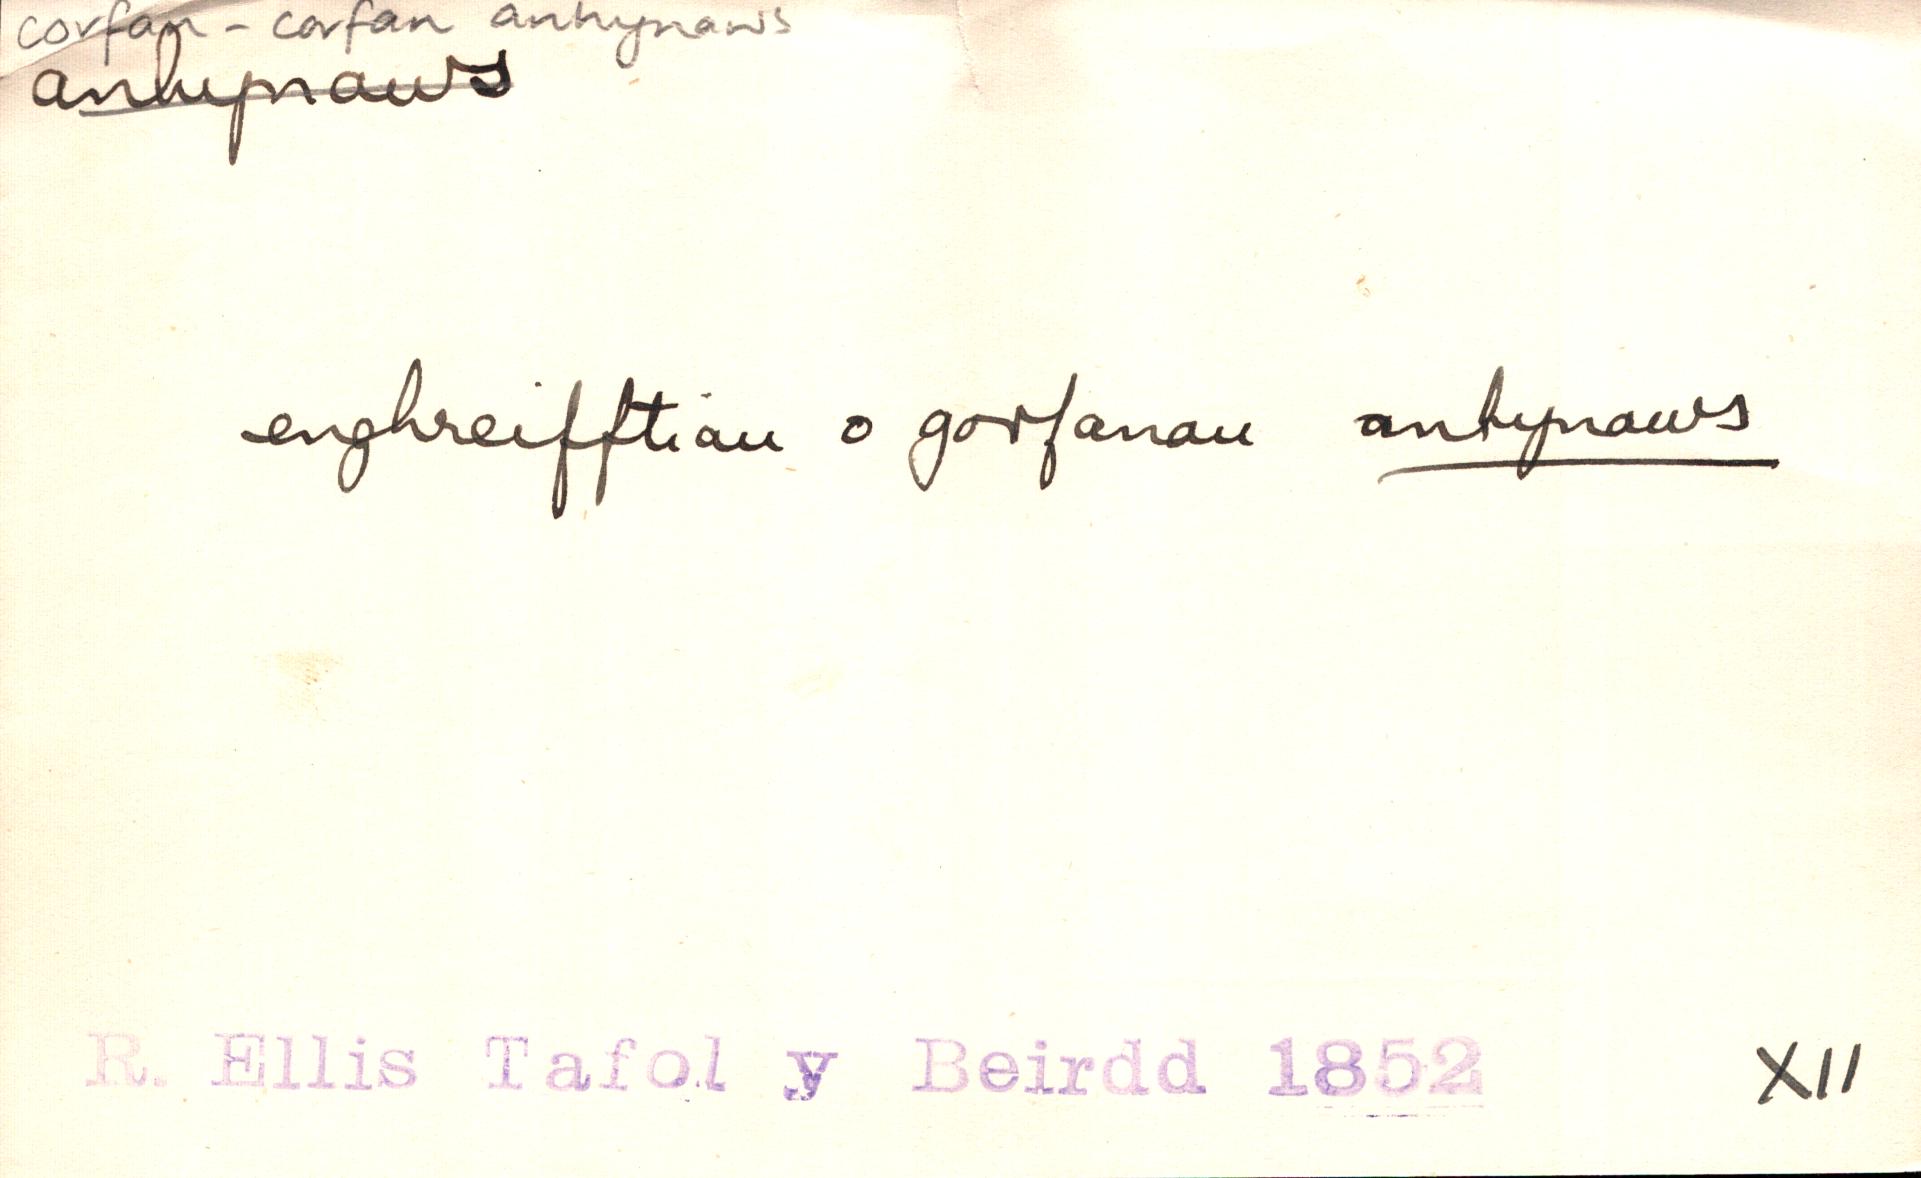 corfan - corfan anhynaws
anhynaws
enghreifftiau o gorfanau anhynaws
R. Ellis Tafol y Beirdd 1852 XII